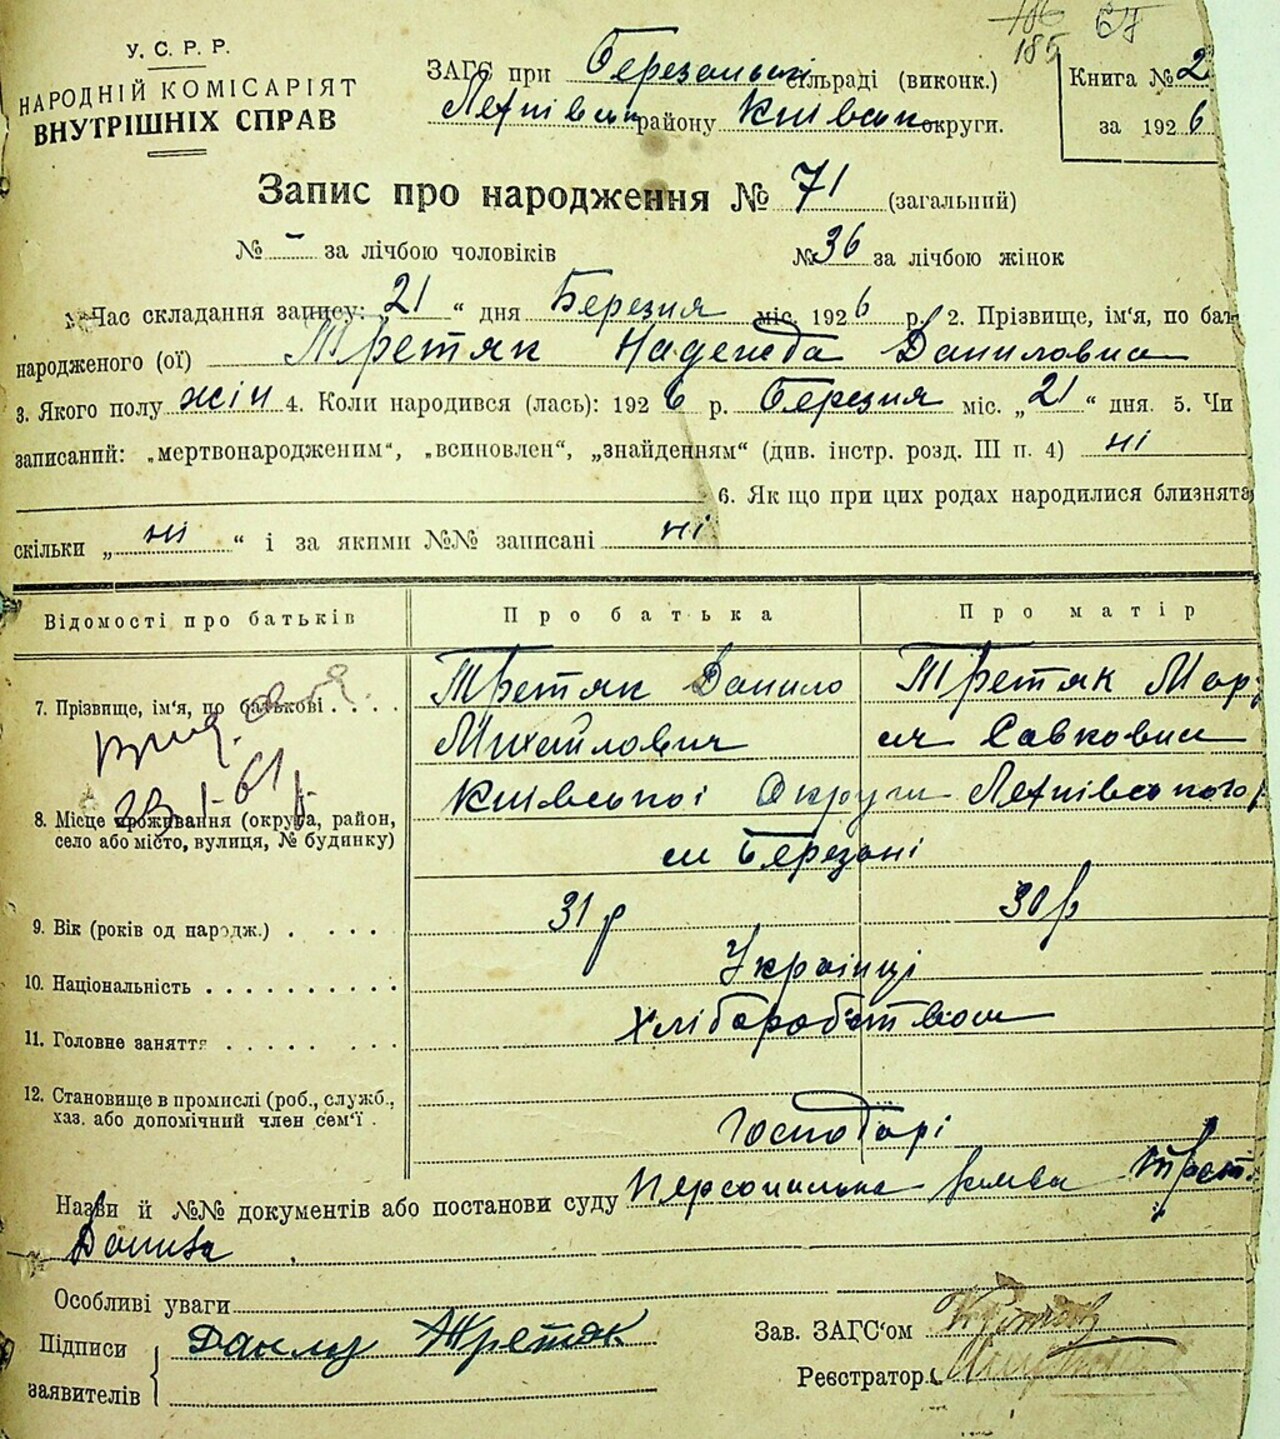 185
У. С. Р. Р.
НАРОДНІЙ КОМІСАРІЯТ
ВНУТРІШНІХ СПРАВ
ЗАГС при Березанській сільраді (виконк.)
району Київськ округи.
Книга № 2
за 1926
Запис про народження № 71 (загальний)
№ - за лічбою чоловіків № 36 за лічбою жінок
1. Час складання запису: „21“ дня Березня міс. 1926 р. 2. Прізвище, ім'я, по бать
народженого (ої) Третяк Надежда Даниловна
3. Якого полу жін 4. Коли народився (лась): 1926 р. Березня міс. „21“ дня. 5. Чи
записаний: „мертвонародженим“, „всиновлен“, „знайденням“ (див. інстр. розд. III п. 4) ні
6. Як що при цих родах народилися близнята
скільки „ні“ і за якими №№ записані ні
Відомості про батьків Про батька Про матір
7. Прізвище, ім'я, по батькові . . . . Третяк Данило Третяк Мар
Михайлович ия Савковна
8. Місце проживання (округа, район, село або місто, вулиця, № будинку) Київської Округи
см Березані
9. Вік (років од народж.) . . . . 31 р 30 р
10. Національність . . . . . . . . . . Українці
11. Головне заняття . . . . . . . . Хліборобством
12. Становище в промислі (роб., служб.,
хаз. або допомічний член сем'ї . Господарі
Назви й №№ документів або постанови суду Персональна заява Трет.
Данила
Особливі уваги
Підписи заявителів Данило Третяк
Зав. ЗАГС'ом
Реєстратор